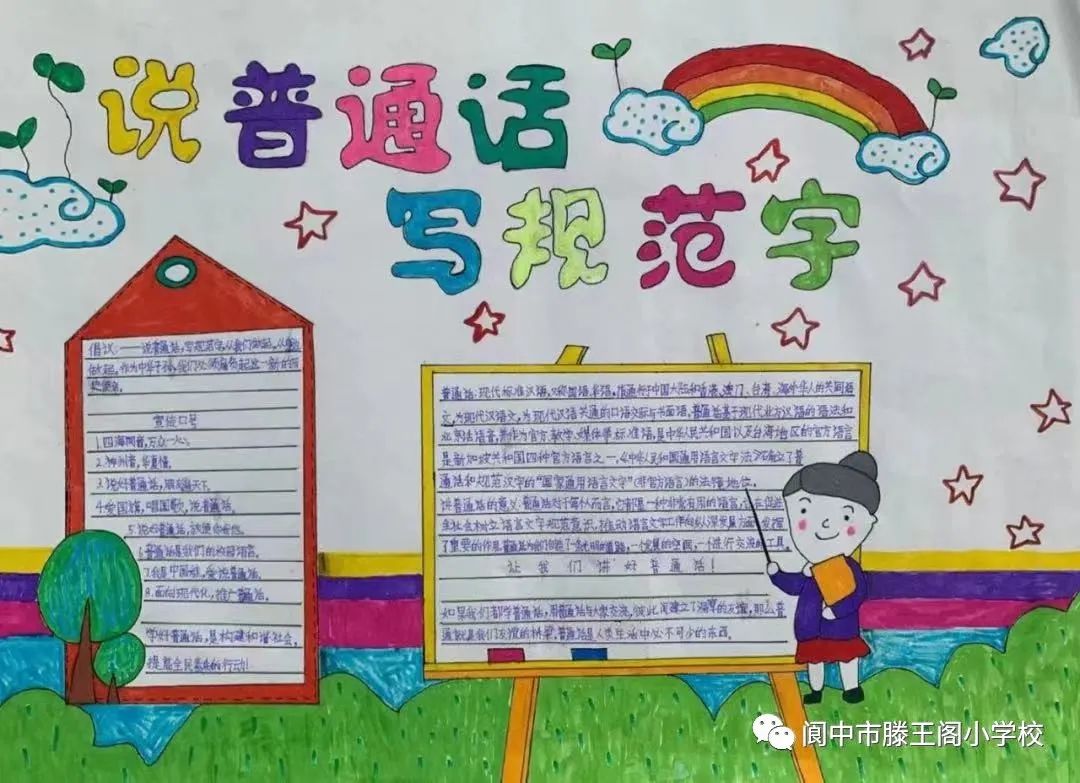 说普通话
写规范字
倡议:——说普通话,写规范字,从我们做起。从
做起。作为中华子孙,我们
宣传口号
1.四海同音,万众一心。
2.神州音,华夏情。
3.说好普通话,朋友遍天下。
4.爱国旗,唱国歌,说普通话。
5.说好普通话,
6.普通话是我们的校园语言。
7.我是中国娃,爱说普通话。
8.面向现代化,推广普通话。
学好普通话,是构建和谐社会,
提高全民素质的行动!
普通话:现代标准汉语,又称国语、华语,指通行于中国大陆和香港、澳门、台湾、海外华人的共同语
文,为现代汉语文,为现代汉语共通的口语交际与书面语,普通话基于现代北方汉语的语法和
北京话语音,常作为官方、教学、媒体等标准语,是中华人民共和国以及台湾地区的官方语言
是新加坡共和国四种官方语言之一,《中华人民和国通用语言文字法》确立了普
通话和规范汉字的“国家通用语言文字”(非官方语言)的法律地位。
讲普通话的意义:普通话对于每个人而言,它都是一种非常有用的语言,它在促进
全社会树立语言文字规范意识,推动语言文字工作向纵深发展方面发挥
了重要的作用,普通话为我们创造了一条光明的道路,一个发展的空间,一个进行交流的工具。
让我们讲好普通话!
如果我们都学普通话,用普通话与大家交流,彼此间建立了深厚的友谊,那么普
通就是我们友谊的桥梁,普通话是人类生活中必不可少的东西。
阆中市滕王阁小学校